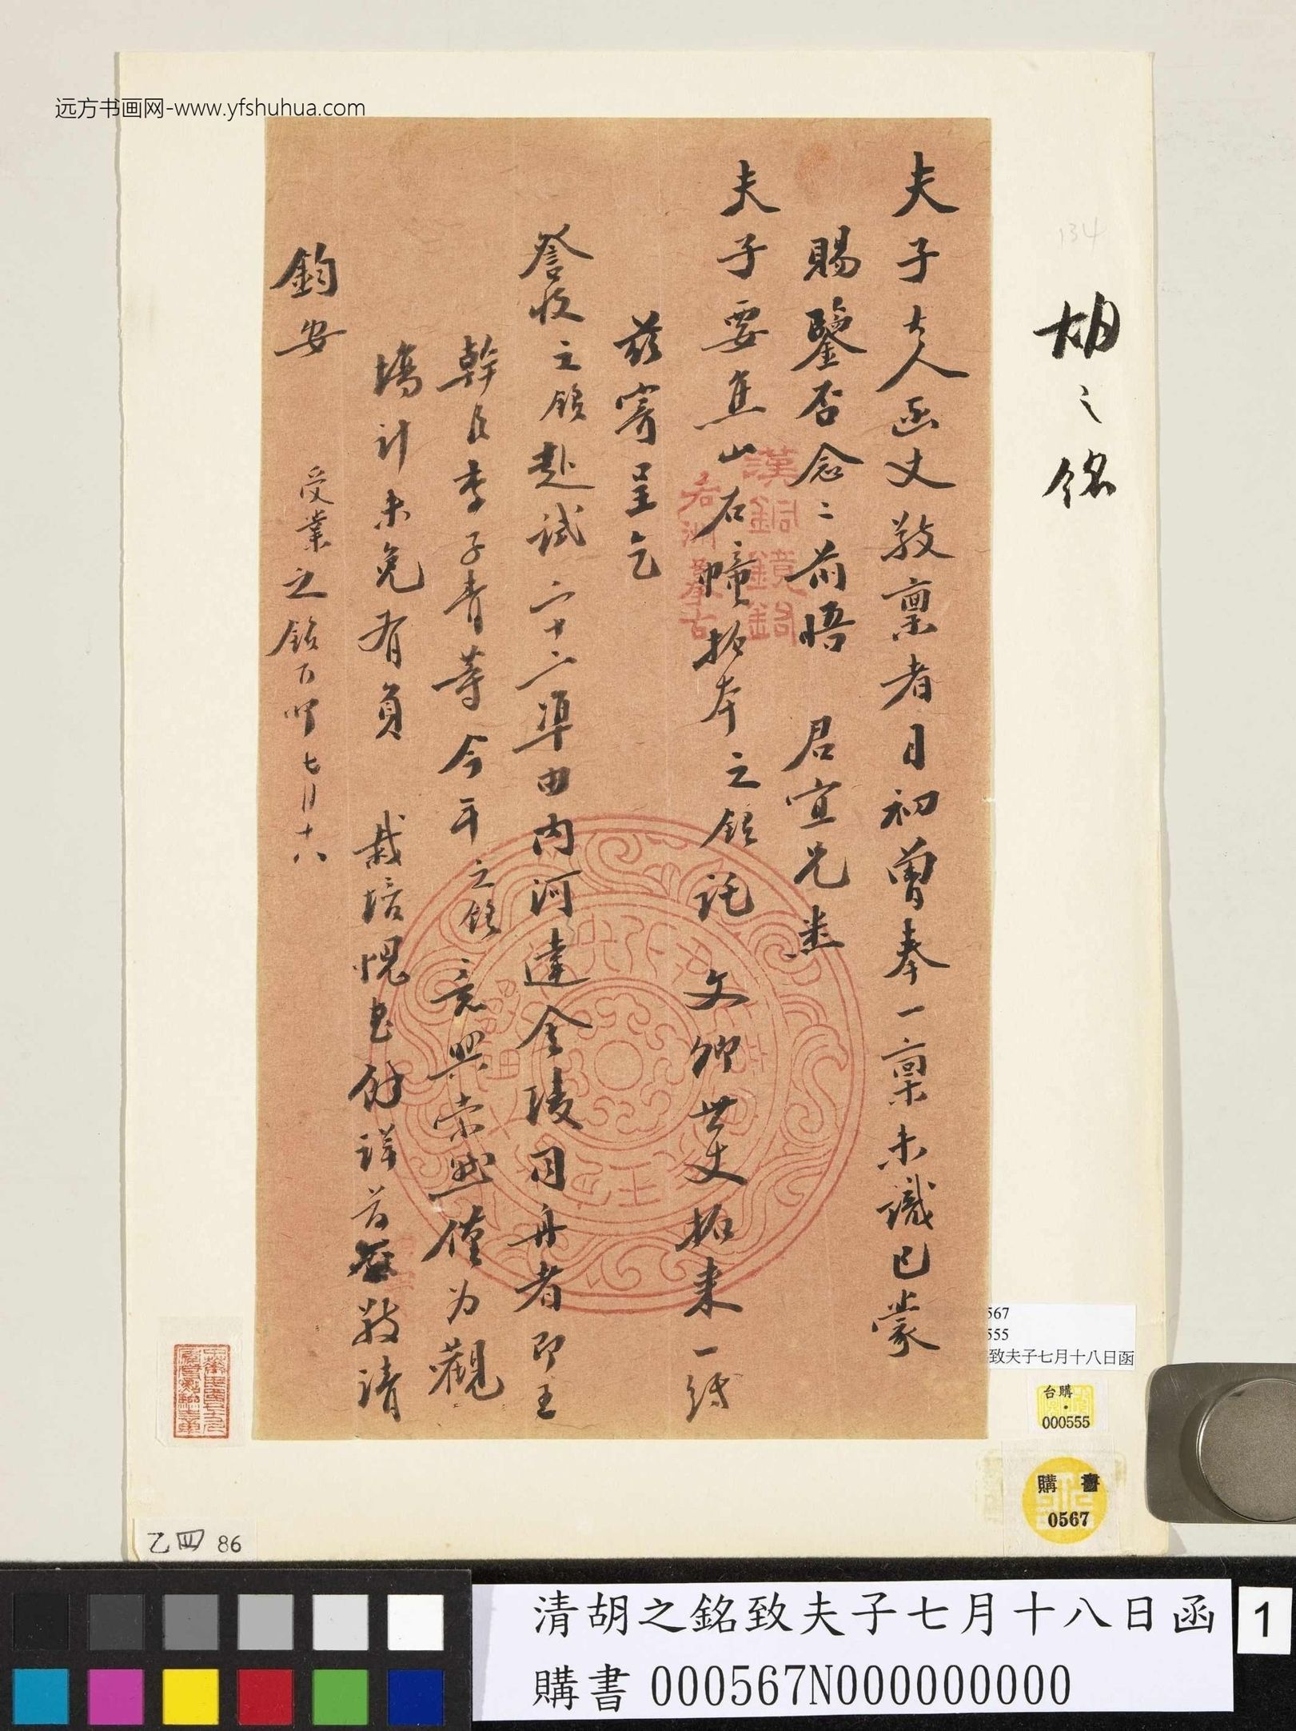 远方书画网-www.yfshuhua.com
134
胡之銘
夫子大人函丈敬稟者月初曾奉一稟未識已蒙
賜鑒否念二前悟 君宜兄悉
夫子要焦山石幢拓本之銘託 文卿世丈拓來一紙
茲寄呈乞
詧收之銘赴試六十二準由內河達金陵同舟者即王
幹臣李子青等今年之銘意興索然僅為觀
場計未免有負 栽培愧也餘詳前稟敬請
鈞安
受業之銘百叩七月十八
漢銅鏡銘
若洲摹古
567
555
致夫子七月十八日函
台購
000555
購書
0567
乙四 86
清胡之銘致夫子七月十八日函
購書 000567N000000000
1